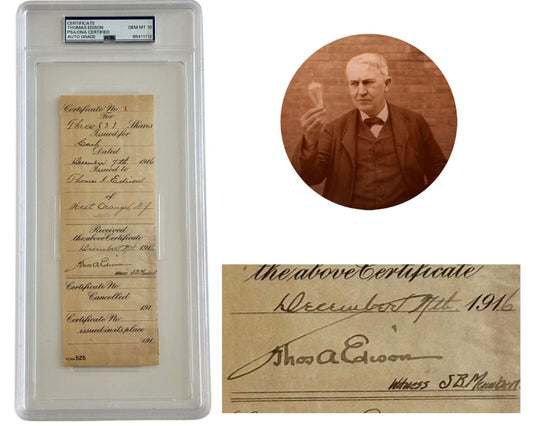 CERTIFICATE
THOMAS EDISON
PSA/DNA CERTIFIED
AUTO GRADE
GEM MT 10
85411112
Certificate No. 1
For
Three (3) Shares
Issued for
Cash
Dated
December 7th 1916
Issued to
Thomas A Edison
of
West Orange, N.J.
Received
the above Certificate
December 7th 1916
Thos A Edison
Witness S B
Certificate No.
Cancelled
191
Certificate No.
issued in its place
191
FORM 525
the above Certificate
December 7th. 1916
Thos A Edison
Witness S B